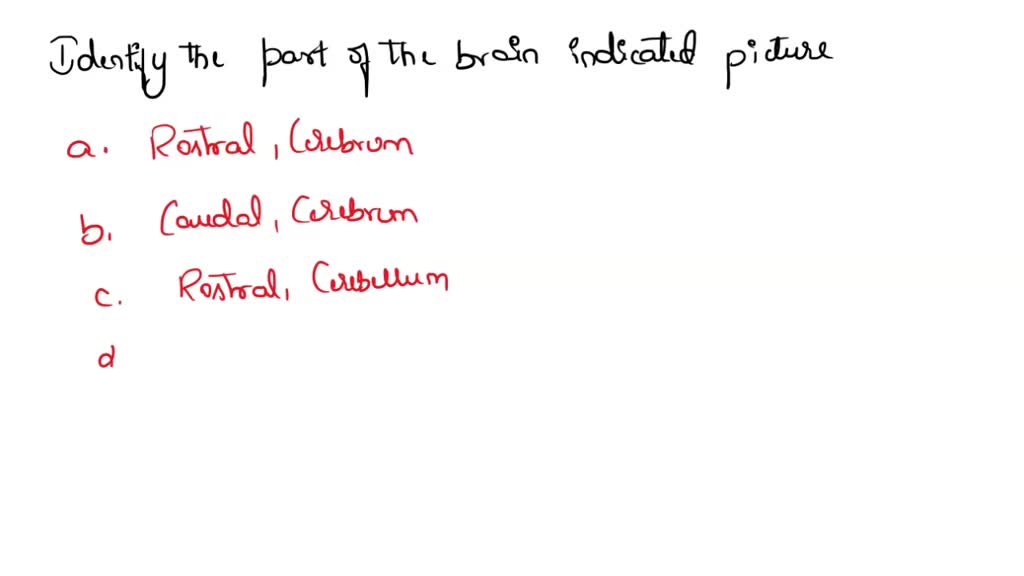 Identify the part of the brain indicated picture
a. Rostral, Cerebrum
b. Caudal, Cerebrum
c. Rostral, Cerebellum
d